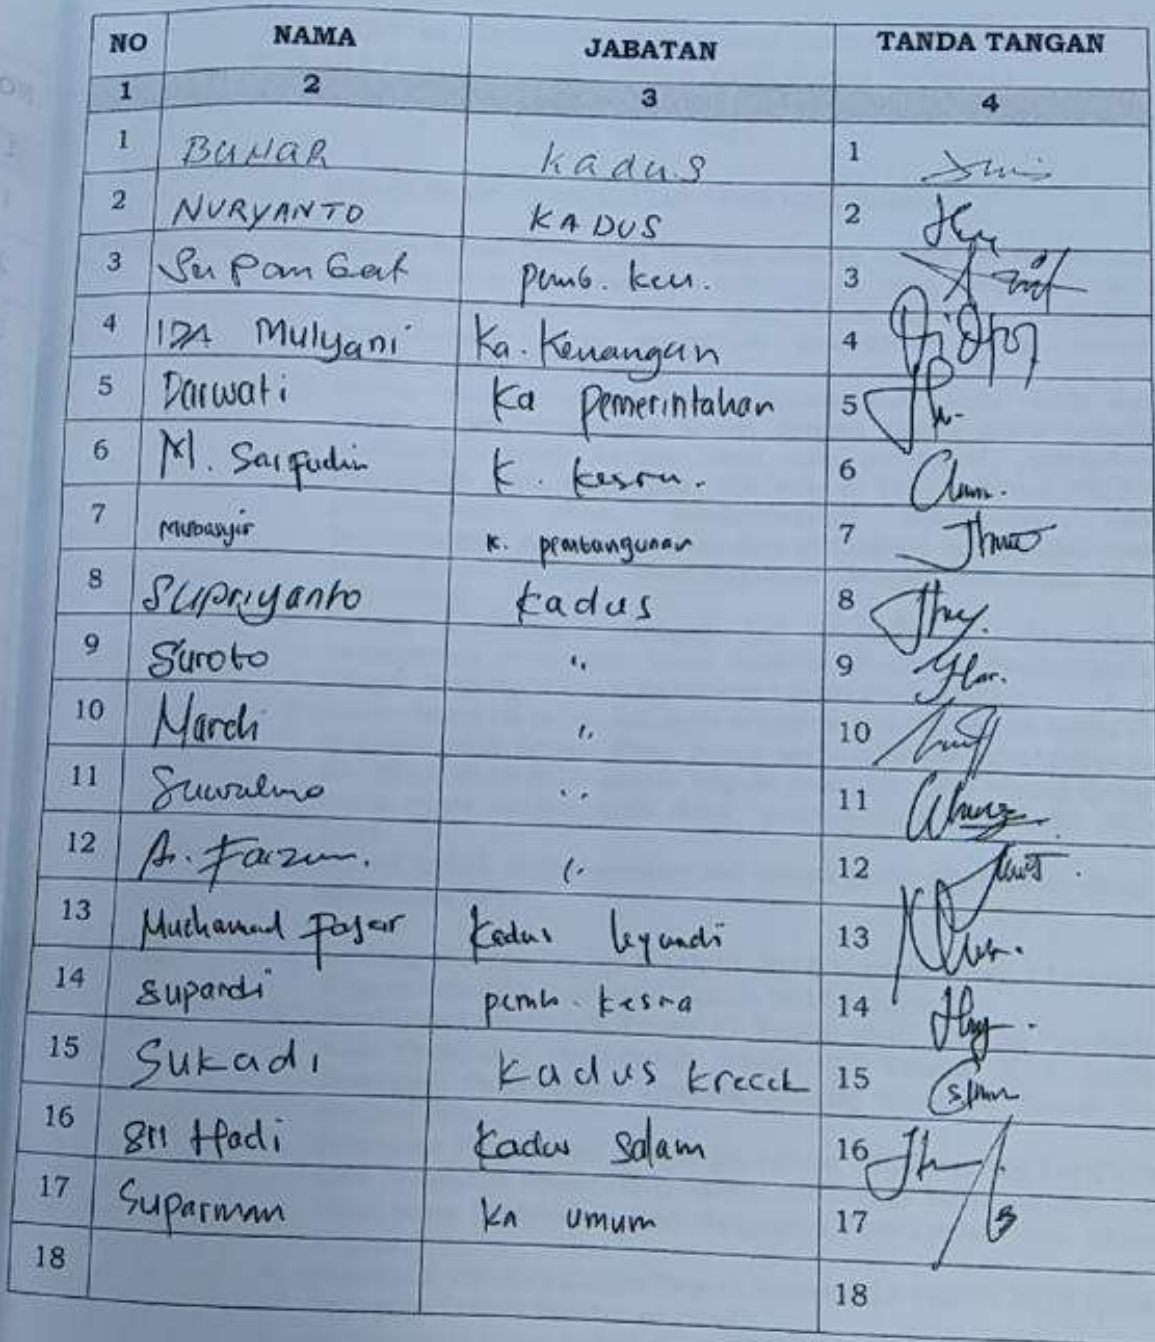 NO NAMA JABATAN TANDA TANGAN
1 2 3 4
1 BUNAR Kadus 1
2 NURYANTO KADUS 2
3 SuPamGat pemb. keu. 3
4 IDA Mulyani Ka. Keuangan 4
5 Darwati Ka pemerintahan 5
6 M. Saifudin K. kesra. 6
7 mubasyir K. pembangunan 7
8 Supriyanto kadus 8
9 Suroto " 9
10 Mardi " 10
11 " 11
12 A. Faizun. " 12
13 Muchamad Fajar Kadus 13
14 supardi pemb. kesra 14
15 Sukadi Kadus krecek 15
16 SRI Hadi Kadus Salam 16
17 Suparman KA umum 17
18 18